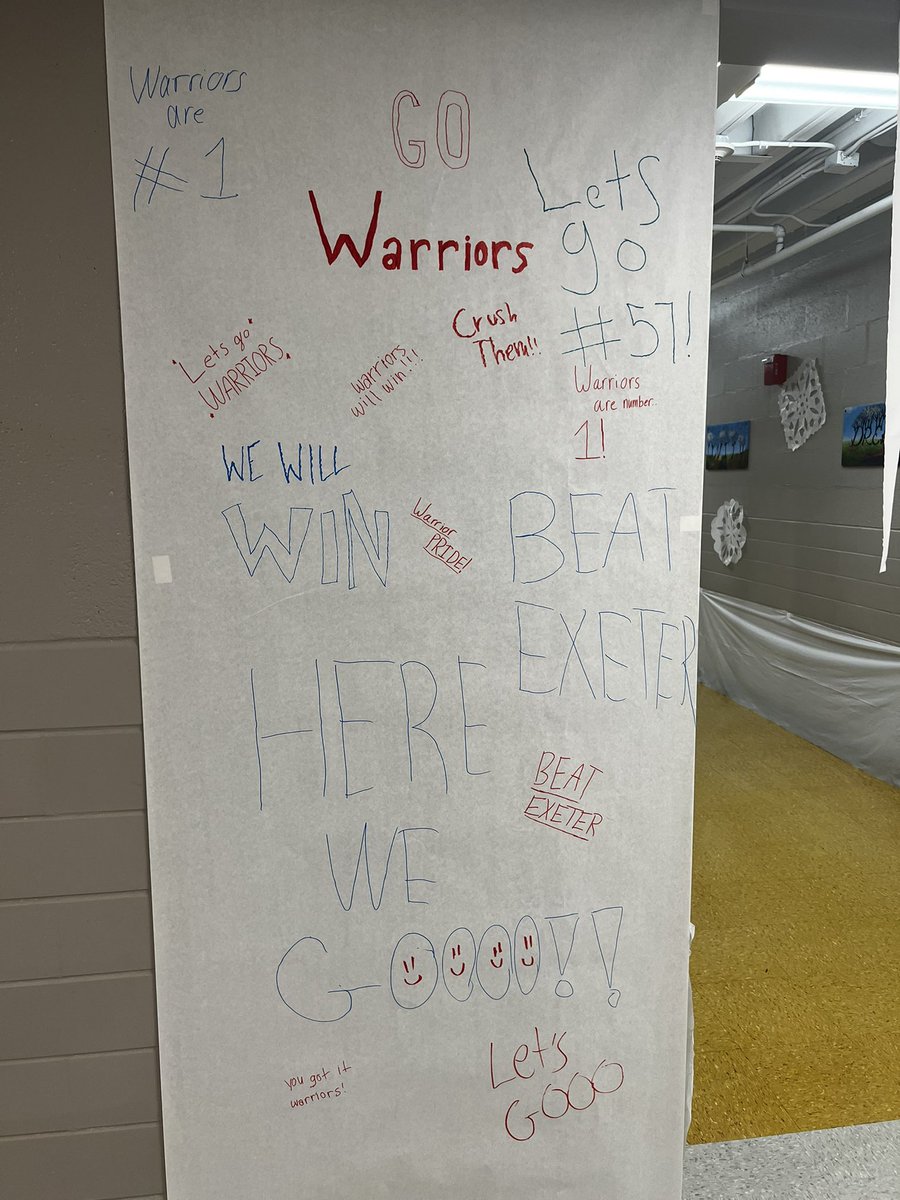 Warriors
are
#1
GO
Warriors
Lets
go
#57!
"Lets go
WARRIORS.
warriors
will win!!!
Crush
Them!!
Warriors
are number..
1!
WE WILL
WIN
Warrior
PRIDE!
BEAT
EXETER
HERE
WE
GOOOO!!
BEAT
EXETER
you got it
warriors!
Let's
GOOO